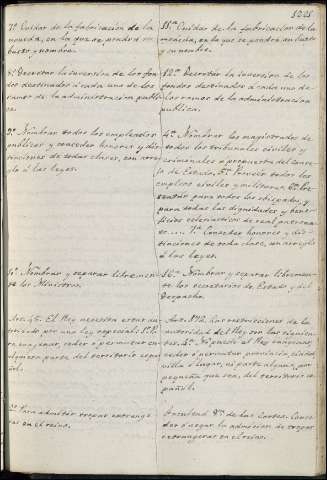 7ª Cuidar de la fabricacion de la
moneda, en la que se pondrá su
busto y nombre.
8ª Decretar la inversion de los fon-
dos destinados á cada uno de los
ramos de la administracion publi-
ca.
9ª Nombrar todos los empleados
publicos y conceder honores y dis-
tinciones de todas clases, con arre-
glo á las leyes.
10ª Nombrar y separar libremen-
te los Ministros.
Art. 46. El Rey necesita estar au-
torizado por una ley especial: 1º Pa-
ra enagenar, ceder ó permutar cu-
alquiera parte del territorio espa-
ñol.
2º Para admitir tropas extrange-
ras en el reino.
11ª Cuidar de la fabricacion de la
moneda, en la que se pondrá su busto
y su nombre.
12ª Decretar la inversion de los
fondos destinados á cada uno de
los ramos de la administracion
publica.
4ª Nombrar los magistrados de
todos los tribunales civiles y
criminales á propuesta del conse-
jo de Estado. 5ª Proveer todos los
empleos civiles y militares. 6ª Pre-
sentar para todos los obispados, y
para todas las dignidades y bene-
ficios eclesiasticos de real patrona-
to.... 7ª Conceder honores y dis-
tinciones de toda clase, con arreglo
á las leyes.
16ª Nombrar y separar libremen-
te los secretarios de Estado y del
Despacho.
Art. 172. Las restricciones de la
autoridad del Rey son las siguien-
tes. 4ª No puede el Rey enagenar,
ceder ó permutar provincia, ciudad,
villa ó lugar, ni parte alguna, por
pequeña que sea, del territorio es-
pañol.
Facultad 8ª de las Cortes. Conce-
der ó negar la admision de tropas
extrangeras en el reino.